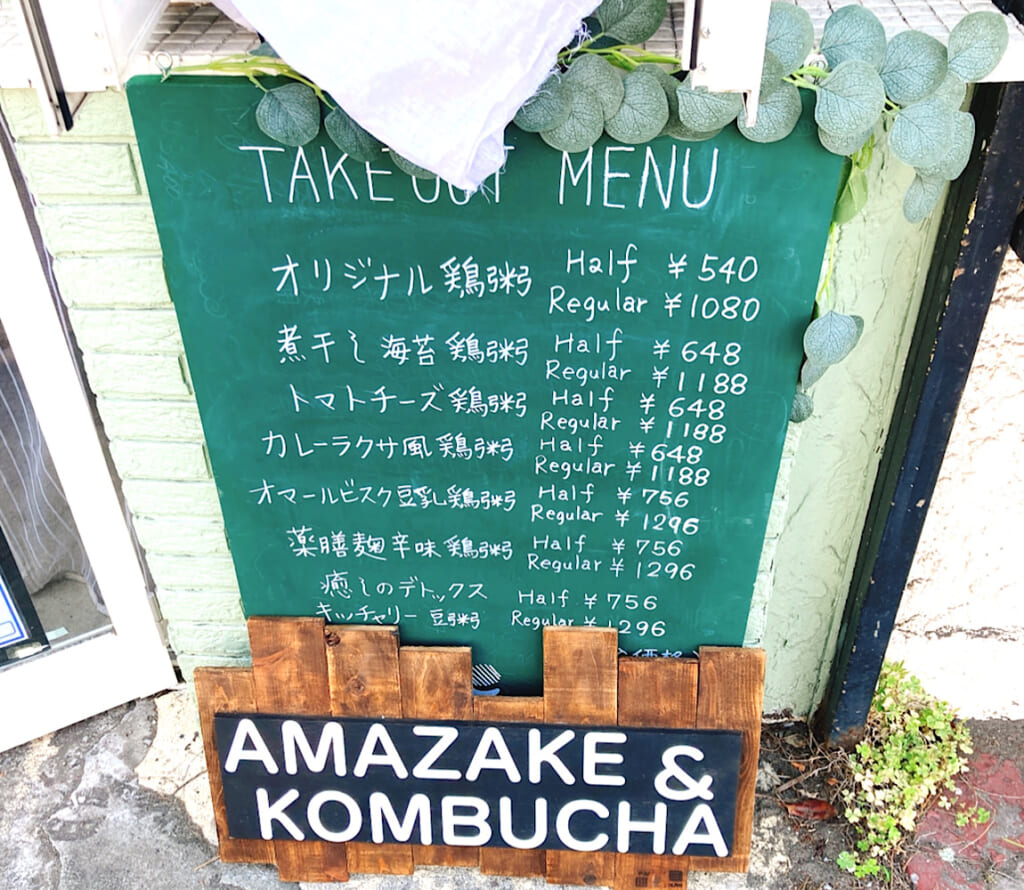 TAKE OUT MENU
オリジナル鶏粥 Half ¥540
Regular ¥1080
煮干し海苔鶏粥 Half ¥648
Regular ¥1188
トマトチーズ鶏粥 Half ¥648
Regular ¥1188
カレーラクサ風鶏粥 Half ¥648
Regular ¥1188
オマールビスク豆乳鶏粥 Half ¥756
Regular ¥1296
薬膳麹辛味鶏粥 Half ¥756
Regular ¥1296
癒しのデトックス Half ¥756
キッチャリー豆粥 Regular ¥1296
AMAZAKE &
KOMBUCHA